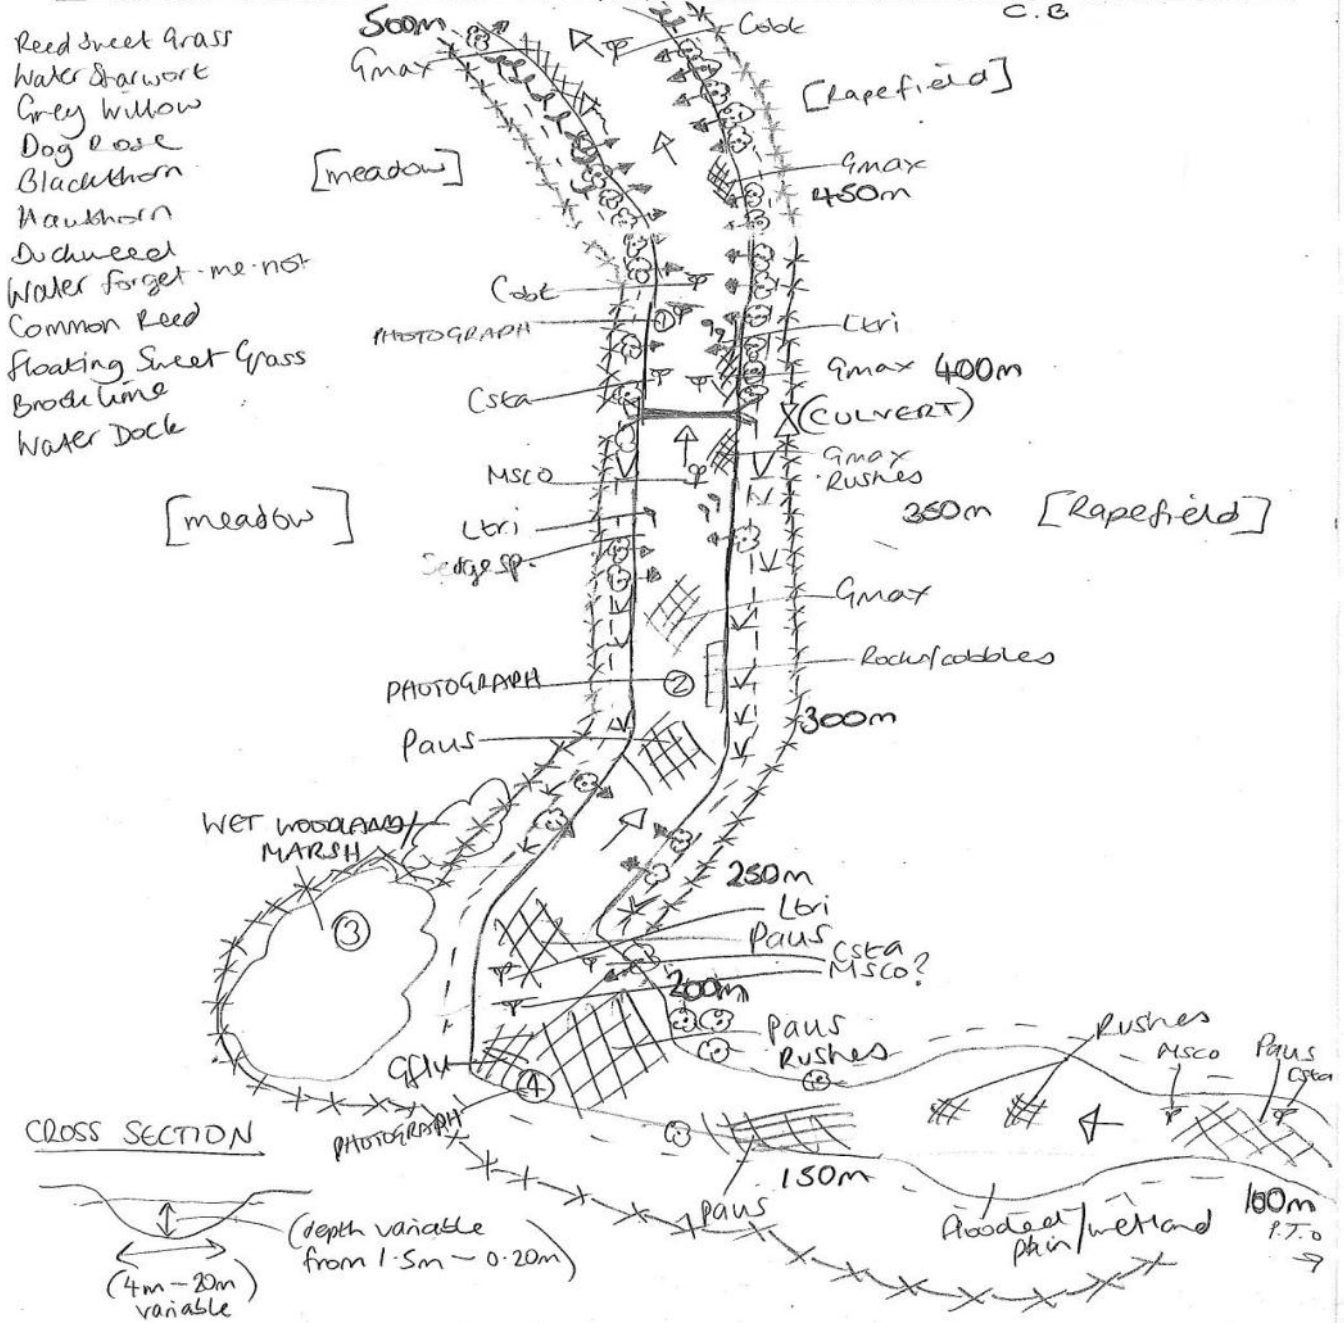 C.B
Reed Sweet Grass
Water Starwort
Grey Willow
Dog Rose
Blackthorn
Hawthorn
Duckweed
Water forget-me-not
Common Reed
Floating Sweet Grass
Brooklime
Water Dock
500m
Gmax
Cobt
[Rapefield]
[meadow]
Gmax
450m
Cobt
PHOTOGRAPH
1
Ltri
Gmax 400m
Csta
(CULVERT)
Gmax
Rushes
MSCO
[meadow]
350m [Rapefield]
Ltri
Sedge sp.
Gmax
Rocks/cobbles
PHOTOGRAPH
2
300m
Paus
WET WOODLAND/
MARSH
3
250m
Ltri
Paus
Csta
MSCO?
200m
Paus
Rushes
Rushes
MSCO
Paus
Csta
Gflu
4
PHOTOGRAPH
150m
Paus
flooded
plain/wetland
100m
P.T.O
CROSS SECTION
(depth variable
from 1.5m - 0.20m)
(4m - 20m)
variable